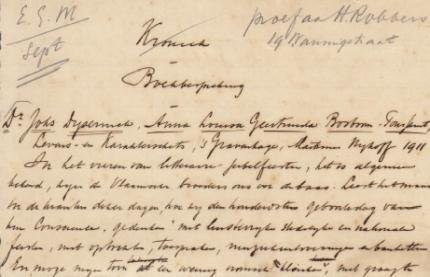 E. G. M
Sept
proef aan H. Robbers
19 Banningstraat
Kroniek
Boekbespreking
Dr. Johs Dyserinck, Anna Louisa Geertruida Bosboom-Toussaint,
Levens- en Karakterschets, 's Gravenhage, Martinus Nijhoff 1911
In het vieren van litteraire jubelfeesten, het is algemeen
bekend, zijn de Vlaamsche broeders ons de baas. Leest het maar
in de kranten dezer dagen, hoe zij den honderdsten geboortedag van
hun Conscience "gedenken" met luisterrijke stedelijke en nationale
feesten, met optocht, toespraken, en banketten
En moge negen toon al een weinig